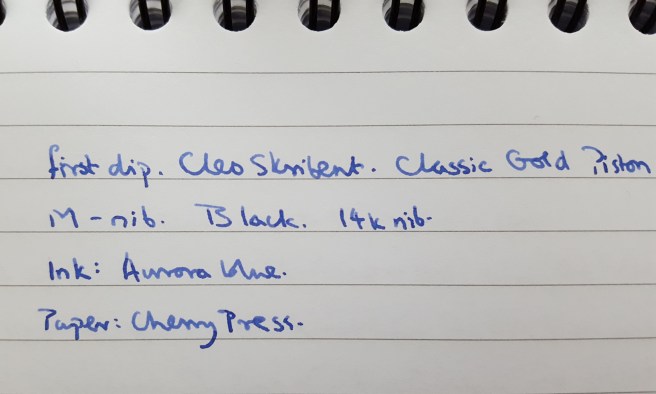 first dip. Cleo Skribent. Classic Gold Piston
M-nib. Black. 14k nib.
Ink: Aurora blue.
Paper: Cherry Press.